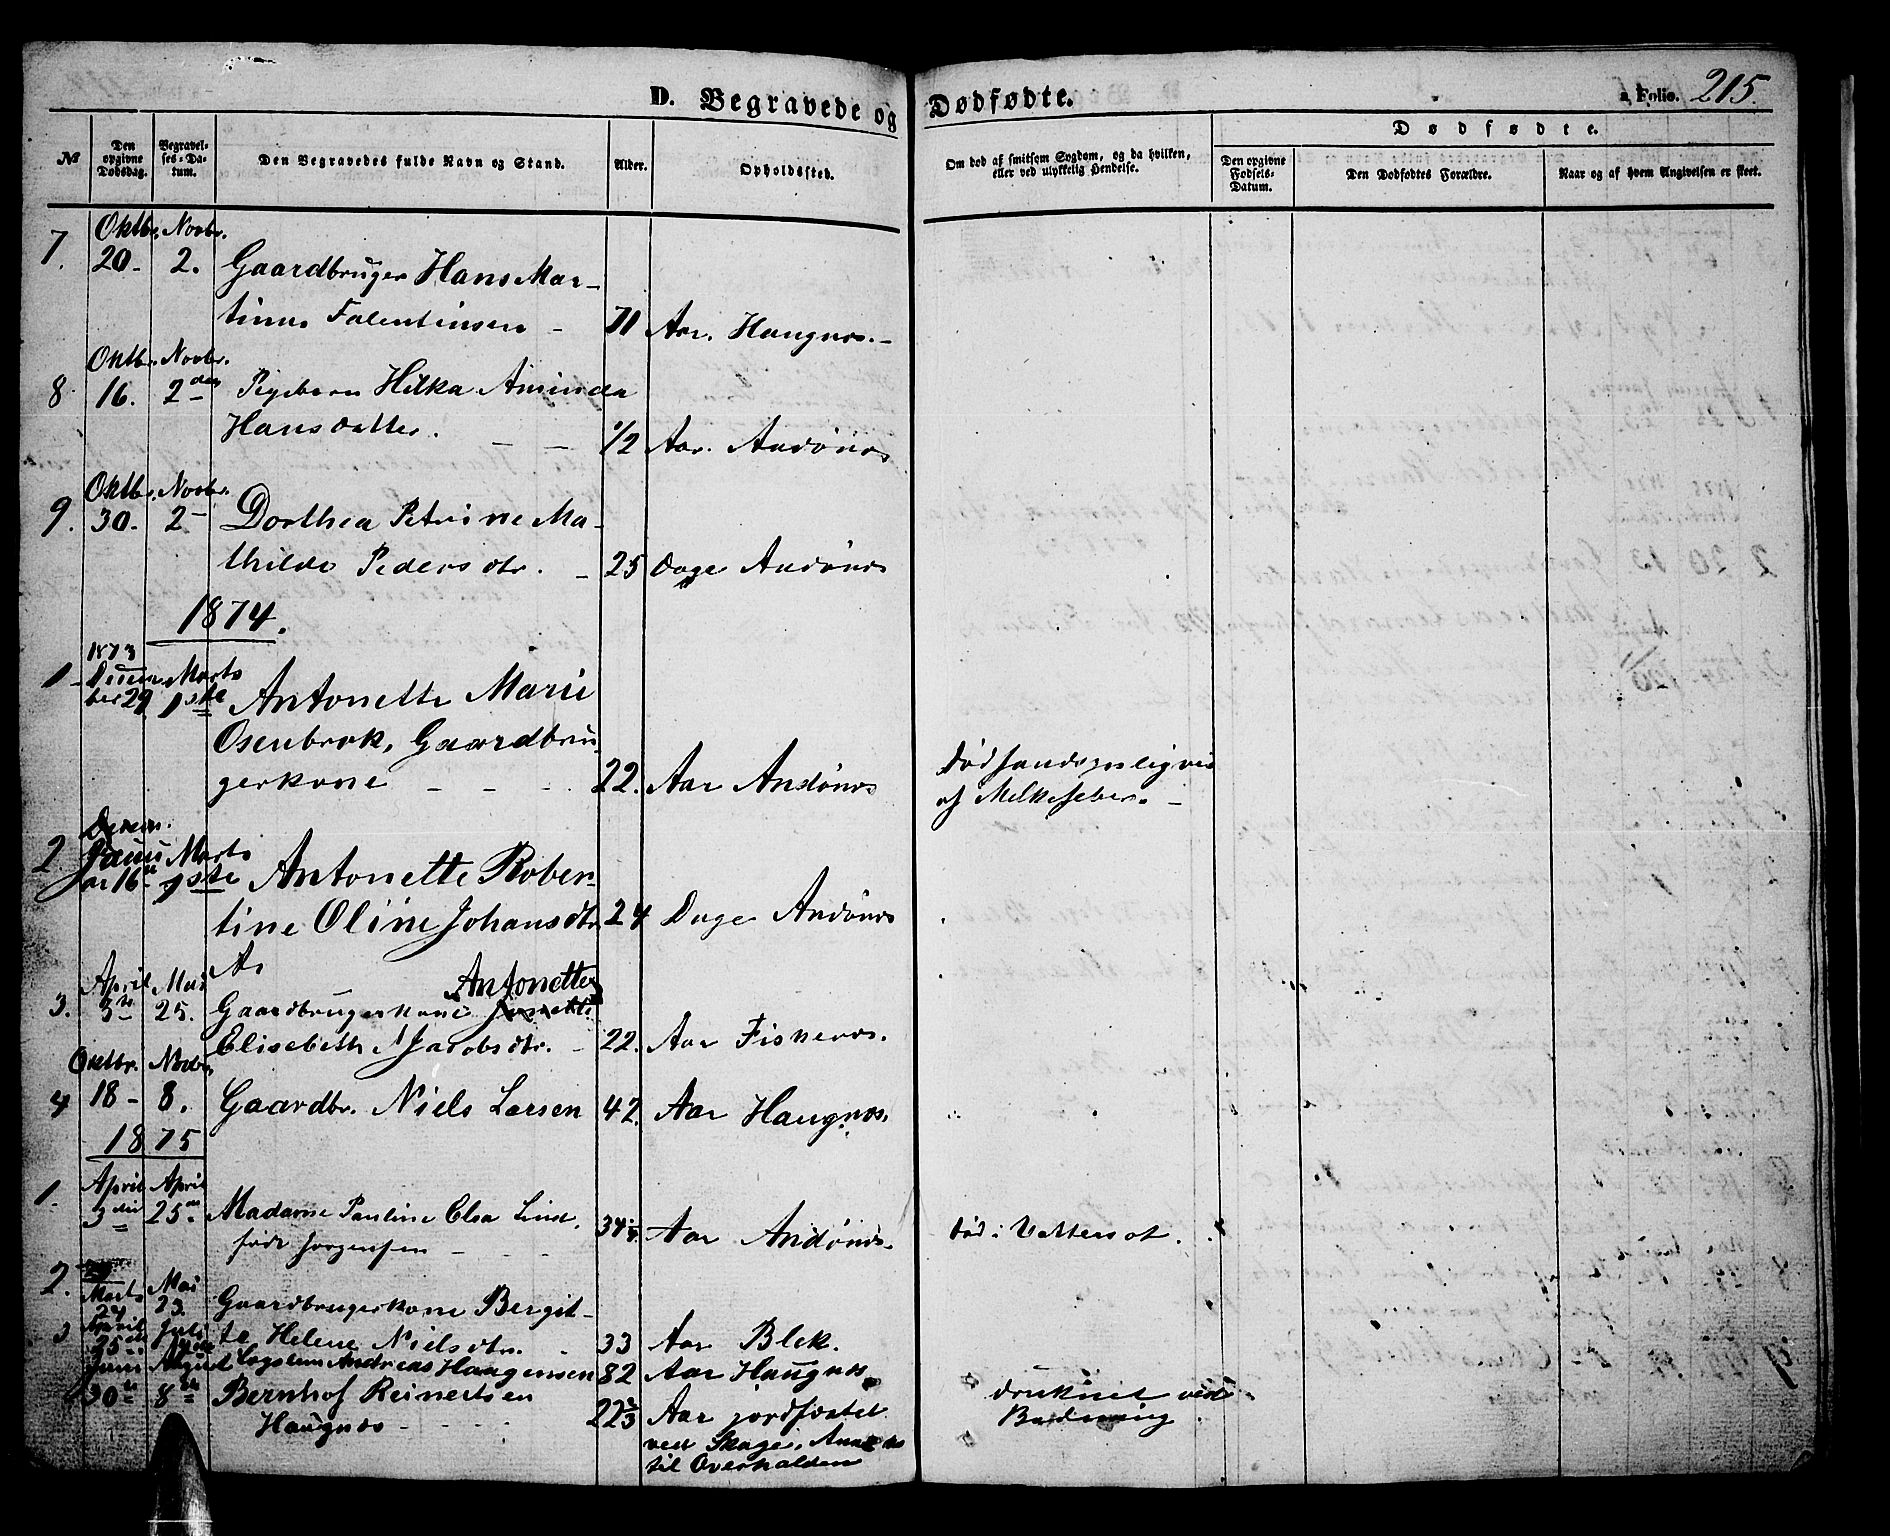 D. Begravede og Dødfødte. a Folio. 215.
No
Den opgivne Dødsdag.
Begravelses-Datum.
Den Begravedes fulde Navn og Stand.
Alder.
Opholdssted.
Om død af smitsom Sygdom, og da hvilken, eller ved ulykkelig Hendelse.
Dødfødte.
Den opgivne Fødsels-Datum.
Den Dødfødtes Forældre.
Naar og af hvem Angivelsen er skeet.
Oktbr. Novbr.
7. 20- 2. Gaardbruger Hans Mar-
tinus Falentinsen - 71 Aar. Haugnæs.-
Oktbr. Novbr.
8 16. 2den Pigebarn Hilka Aminda
Hansdatter. - - 1/2 Aar. Andønæs
Oktbr. Novbr.
9. 30. 2- Dorthea Petrine Ma-
thilde Pedersdtr. - 25 Dage Andønæs
1874.
1873
1- Decem- Marts
ber 29 1ste Antonette Marie
Osenbrok, Gaardbru-
gerkone - - - 22. Aar Andønæs
Død sandsynligvis
af Melkefeber. -
Decem.
2 Janu Marts
ar 16 1ste Antonette Rober-
tine Oline Johansdtr 24 Dage Andønæs
April Mai Antonette
3. 3die 25. Gaardbrugerkone
Elisebeth Jacobsdtr. - 22. Aar Fiskenæs.
Oktbr. Novbr.
4 18- 8. Gaardbr. Niels Larsen 42. Aar Haugnæs.
1875
April April
1. 3die 25de Madame Pauline Elsa Lind,
født Jørgensen - - - 34 Aar Andønæs. død i Vattersot.
2. Marts Mai
24 23. Gaardbrugerkone Bergit-
te Helene Nielsdtr. 33 Aar Blek.
3 April Juli
25de Logslem Andreas Haagensen 82 Aar Haugnæs
Juni August
30te 8de Bernhof Reinertsen
Haugnæs - - - 22 2/3 Aar jordfæstet
ved Skage, Annex
til Overhalden
druknet ved
Badning